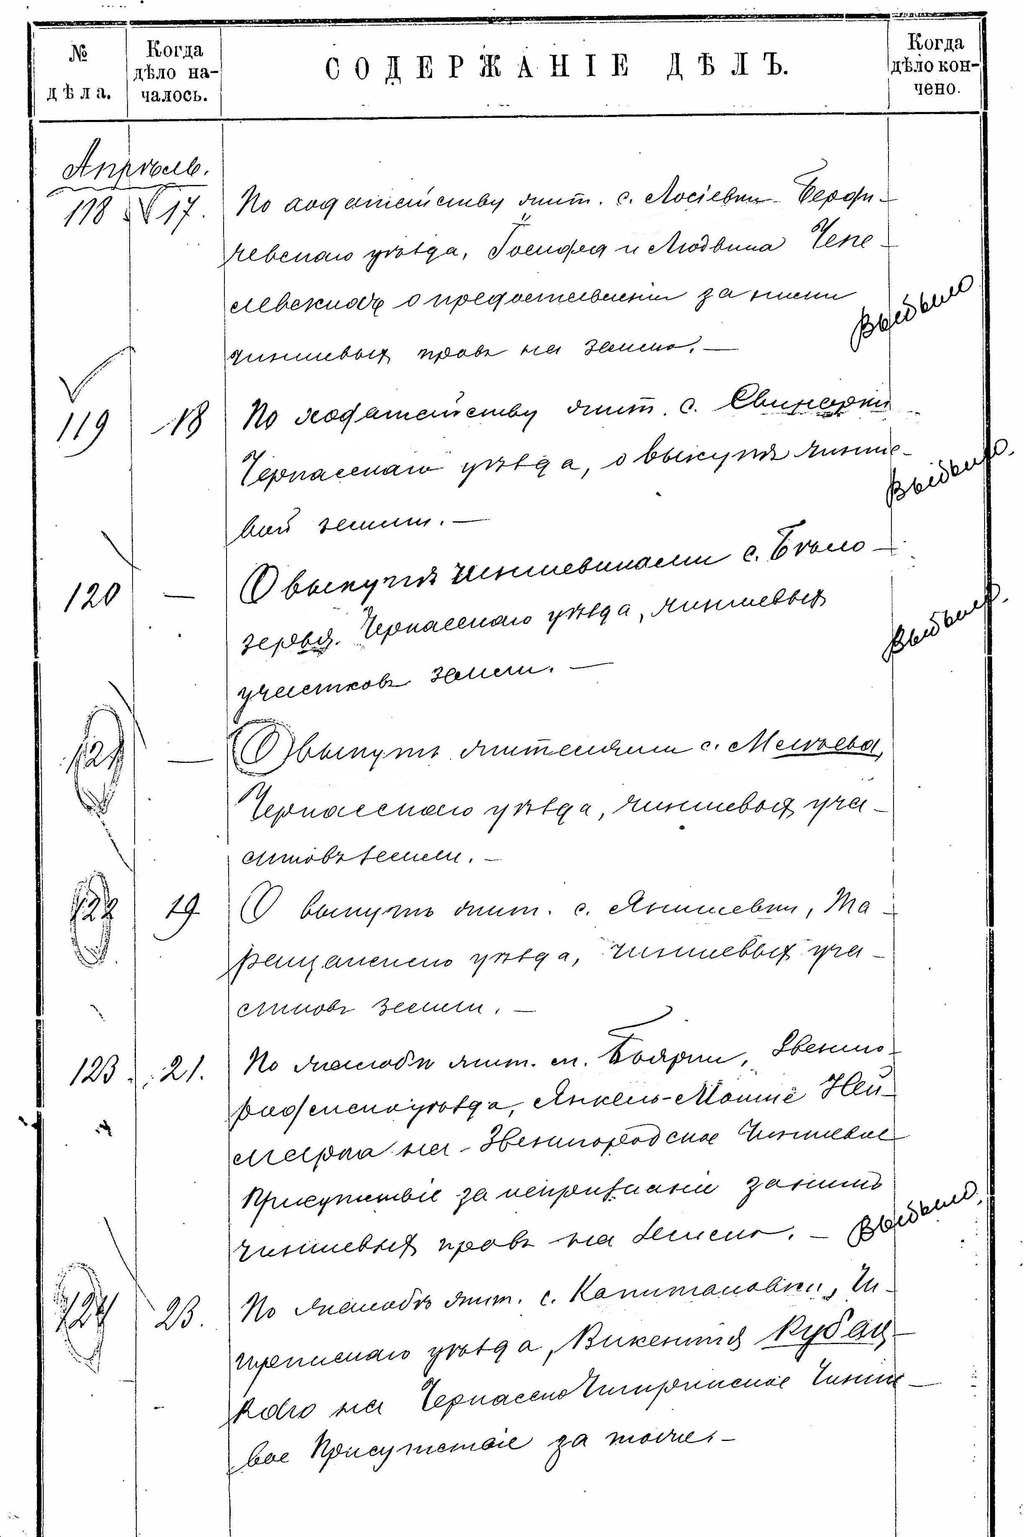 № дѣла.
Когда дѣло началось.
СОДЕРЖАНІЕ ДѢЛЪ.
Когда дѣло кончено.
Апрѣль.
118 17. По ходатайству жит. с. Лосіевки Берди-
чевскаго уѣзда, Іосифа и Людвика Чепе-
левскихъ о предоставленіи за ними
чиншевыхъ правъ на землю. —
Выбыло
119 18 По ходатайству жит. с. Свинарки
Черкасскаго уѣзда, о выкупѣ чинше-
вой земли. —
Выбыло.
120 — О выкупѣ чиншевиками с. Бѣло-
зерья Черкасскаго уѣзда, чиншевыхъ
участковъ земли. —
Выбыло.
121 — О выкупѣ жителями с. Мельѣева,
Черкасскаго уѣзда, чиншевыхъ уча-
стковъ земли. —
122 19 О выкупѣ жит. с. Янишевки, Та-
ращанскаго уѣзда, чиншевыхъ уча-
стковъ земли. —
123. 21. По жалобѣ жит. м. Боярки, Звениго-
родскаго уѣзда, Янкель-Мошке Ней-
марка на Звенигородское Чиншевое
Присутствіе за непризнаніе за нимъ
чиншевыхъ правъ на землю. —
Выбыло.
124 23. По жалобѣ жит. с. Капитановки, Чи-
гиринскаго уѣзда, Викентія Кубац-
каго на Черкасско Чигиринское Чинше-
вое Присутствіе за тоже. —